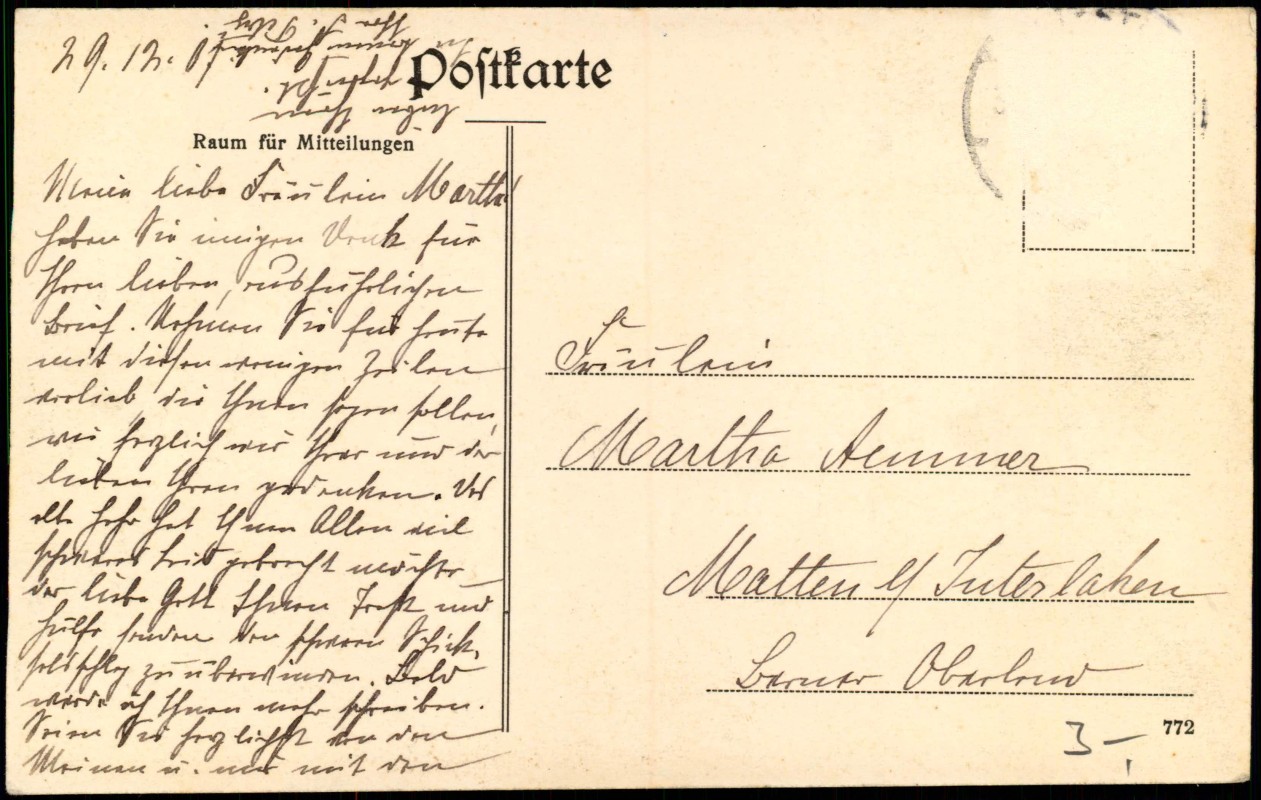 29. 12.
Postkarte
Raum für Mitteilungen
Meine liebe Fräulein Martha!
Haben Sie innigen Dank für
Ihren lieben, ausführlichen
Brief. Nehmen Sie für heute
mit diesen wenigen Zeilen
vorlieb, die Ihnen sagen sollen,
wie herzlich wir Ihrer und der
lieben Ihren gedenken. Das
alte Jahr hat Ihnen Allen viel
schweres Leid gebracht möchte
der liebe Gott Ihnen Trost und
Hülfe senden den schweren Schick-
salsschlag zu überwinden. Bald
werde ich Ihnen mehr schreiben.
Seien Sie herzlichst von den
Meinen u. mir mit den
Fräulein
Martha Aemmer
Matten b/ Interlaken
Berner Oberland
3 –
772